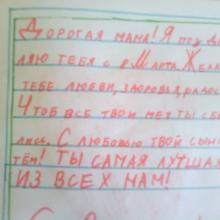 Дорогая мама! Я поз
ляю тебя с 8 Марта. Жела
тебе любви, здоровья, радос
Чтоб все твои мечты сб
лись. С любовью твой сын
тём! Ты самая лучшая
из всех мам!